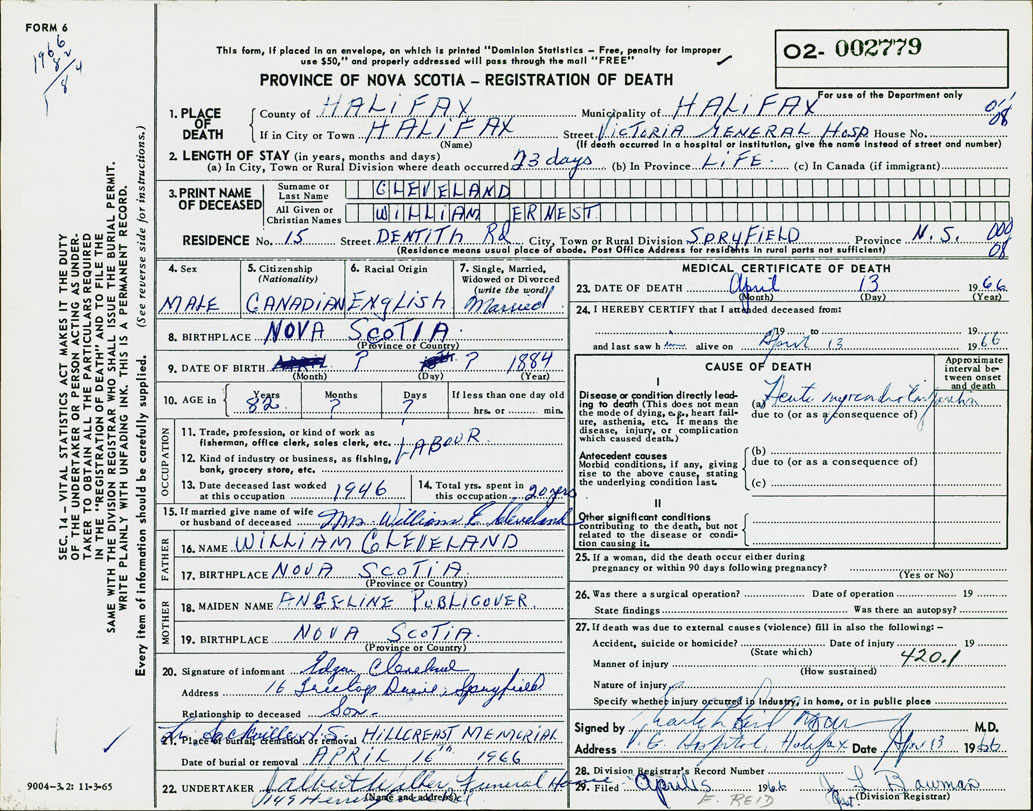 FORM 6
1966
82
84
This form, if placed in an envelope, on which is printed "Dominion Statistics – Free, penalty for improper
use $50," and properly addressed will pass through the mail "FREE"
02- 002779
PROVINCE OF NOVA SCOTIA – REGISTRATION OF DEATH
For use of the Department only
1. PLACE OF DEATH County of HALIFAX Municipality of HALIFAX
08
If in City or Town HALIFAX Street VICTORIA GENERAL HOSP House No.
(Name) (If death occurred in a hospital or institution, give the name instead of street and number)
2. LENGTH OF STAY (in years, months and days)
(a) In City, Town or Rural Division where death occurred 23 days (b) In Province LIFE. (c) In Canada (if immigrant)
3. PRINT NAME OF DECEASED Surname or Last Name CLEVELAND
All Given or Christian Names WILLIAM ERNEST
RESIDENCE No. 15 Street DENTITH Rd City, Town or Rural Division SPRYFIELD Province N.S. 000
(Residence means usual place of abode. Post Office Address for residents in rural parts not sufficient) 08
4. Sex MALE
5. Citizenship (Nationality) CANADIAN
6. Racial Origin English
7. Single, Married, Widowed or Divorced (write the word) Married
8. BIRTHPLACE NOVA SCOTIA
(Province or Country)
9. DATE OF BIRTH ? ? 1884
(Month) (Day) (Year)
10. AGE in Years 82 Months ? Days ? If less than one day old hrs. or min.
OCCUPATION
11. Trade, profession, or kind of work as fisherman, office clerk, sales clerk, etc. LABOUR
12. Kind of industry or business, as fishing, bank, grocery store, etc.
13. Date deceased last worked at this occupation 1946
14. Total yrs. spent in this occupation 20 yrs
15. If married give name of wife or husband of deceased Mrs. William E Cleveland
FATHER
16. NAME WILLIAM CLEVELAND
17. BIRTHPLACE NOVA SCOTIA
(Province or Country)
MOTHER
18. MAIDEN NAME ANGELINE PUBLICOVER
19. BIRTHPLACE NOVA SCOTIA.
(Province or Country)
20. Signature of informant Edgar Cleveland
Address 16 Treetop Drive, Spryfield
Relationship to deceased Son-
21. Place of burial, cremation or removal Lr Sackville N.S. HILLCREST MEMORIAL
Date of burial or removal APRIL 16th 1966
22. UNDERTAKER Funeral Home
(Name and address)
MEDICAL CERTIFICATE OF DEATH
23. DATE OF DEATH April 13 1966
(Month) (Day) (Year)
24. I HEREBY CERTIFY that I attended deceased from:
19 to 19
and last saw him alive on April 13 1966
CAUSE OF DEATH
Approximate interval between onset and death
I
Disease or condition directly leading to death (This does not mean the mode of dying, e.g., heart failure, asthenia, etc. It means the disease, injury, or complication which caused death.)
(a) Acute myocardial infarction
due to (or as a consequence of)
Antecedent causes
Morbid conditions, if any, giving rise to the above cause, stating the underlying condition last.
(b)
due to (or as a consequence of)
(c)
II
Other significant conditions contributing to the death, but not related to the disease or condition causing it.
25. If a woman, did the death occur either during pregnancy or within 90 days following pregnancy?
(Yes or No)
26. Was there a surgical operation? Date of operation 19
State findings Was there an autopsy?
27. If death was due to external causes (violence) fill in also the following: –
Accident, suicide or homicide? Date of injury 19
(State which)
Manner of injury 420.1
(How sustained)
Nature of injury
Specify whether injury occurred in industry, in home, or in public place
Signed by M.D.
Address V. G. Hospital, Halifax Date Apr 13 1966
28. Division Registrar's Record Number
29. Filed April 15 1966 Bowman
E. REID (Division Registrar)
SEC. 14 – VITAL STATISTICS ACT MAKES IT THE DUTY
OF THE UNDERTAKER OR PERSON ACTING AS UNDER-
TAKER TO OBTAIN ALL THE PARTICULARS REQUIRED
IN THE "REGISTRATION OF DEATH" AND TO FILE THE
SAME WITH THE DIVISION REGISTRAR WHO SHALL ISSUE THE BURIAL PERMIT.
WRITE PLAINLY WITH UNFADING INK. THIS IS A PERMANENT RECORD.
Every item of information should be carefully supplied. (See reverse side for instructions.)
9004-3.2: 11-3-65